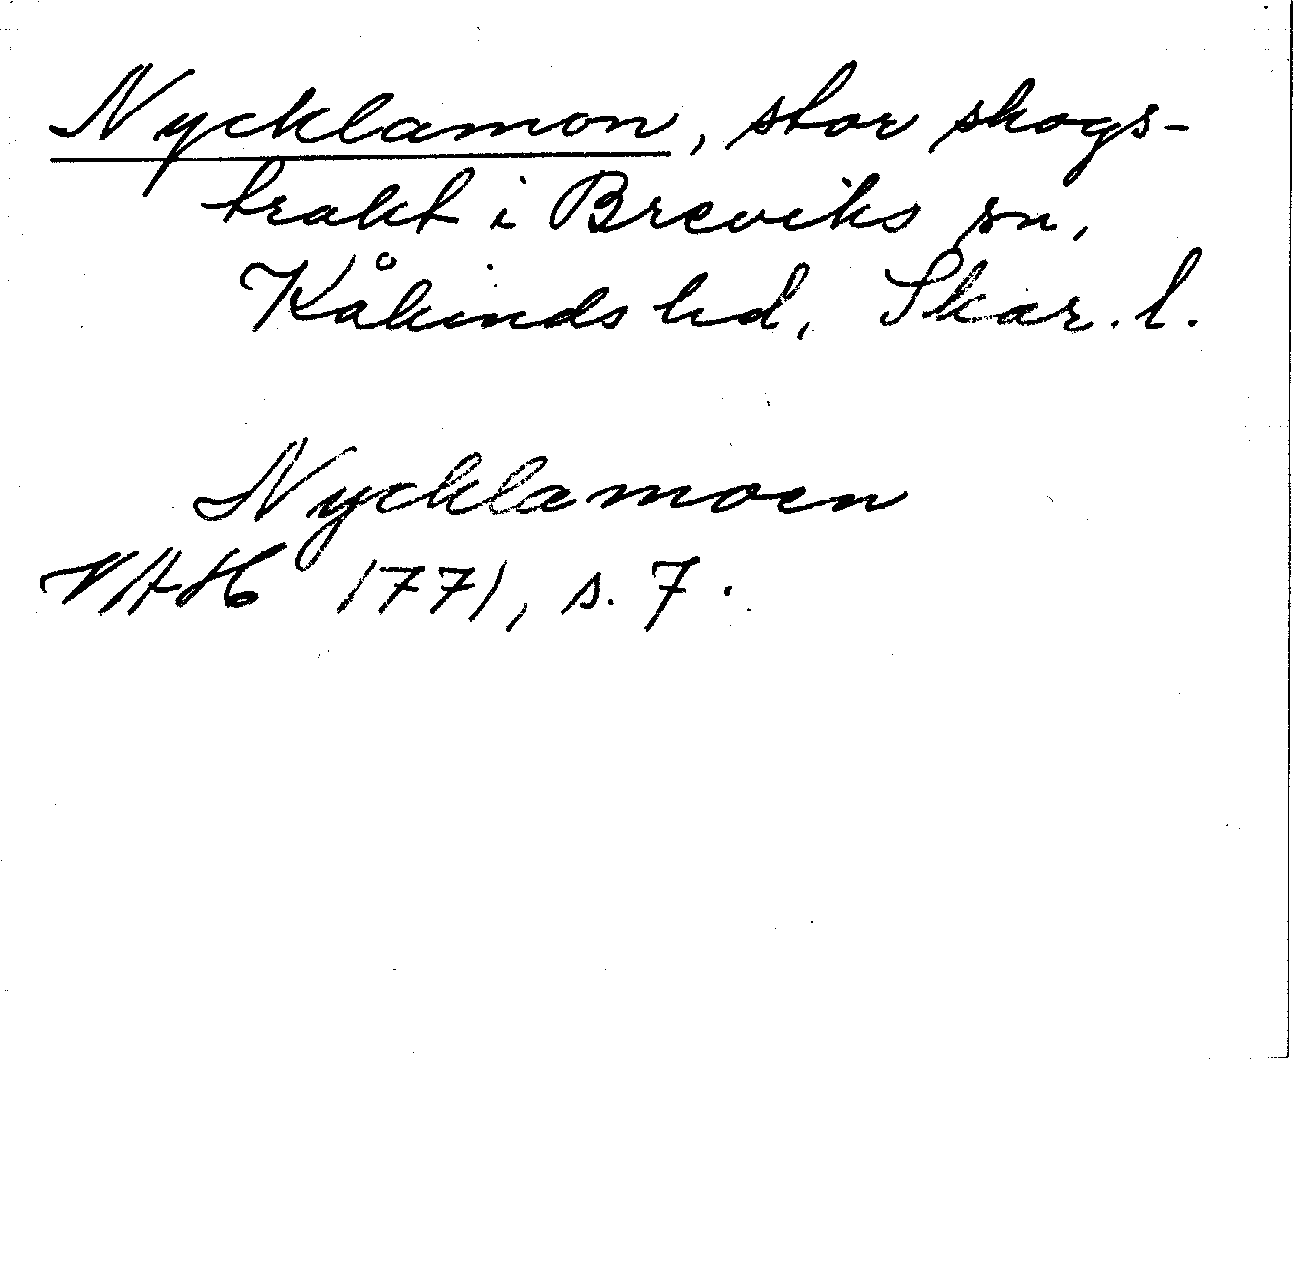 Nycklamon, stor skogs-
trakt i Breviks sn,
Kåkinds hd, Skar. l.
Nycklamoen
VAH 1771, s. 7.